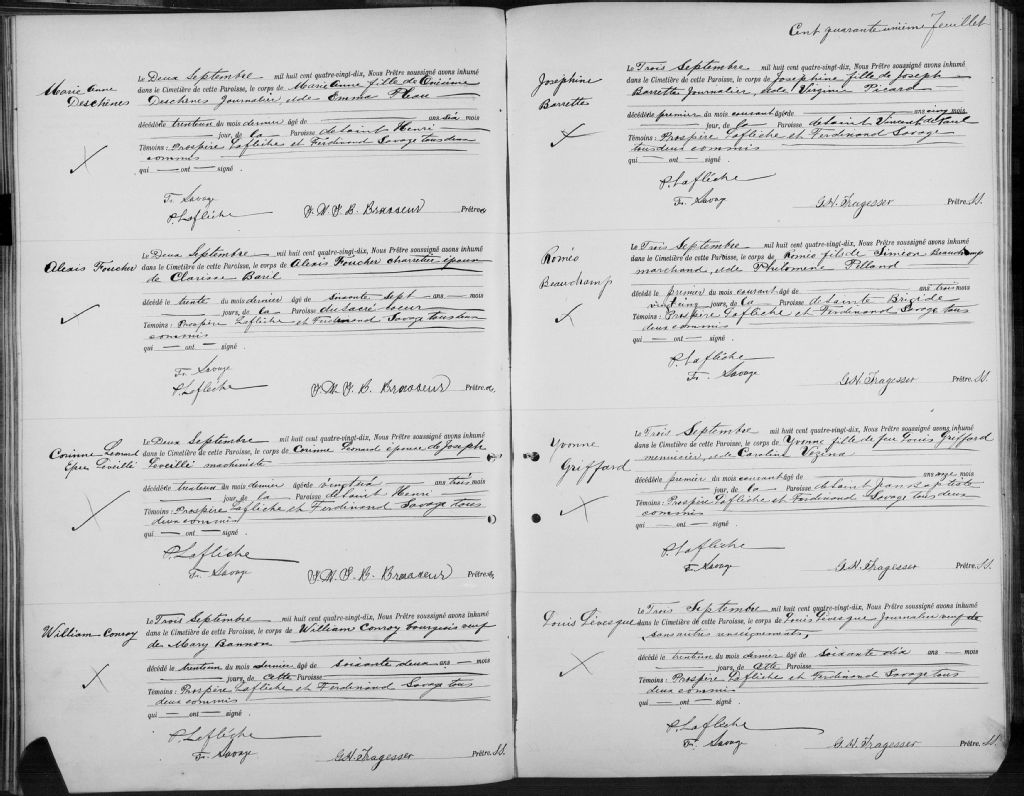 Marie Anne
Deschênes
Le Deux Septembre mil huit cent quatre-vingt-dix, Nous Prêtre soussigné avons inhumé
dans le Cimetière de cette Paroisse, le corps de Marie Anne fille de Onésime
Deschênes Journalier, et de Emma
décédée le trenteun du mois dernier âgé de — ans six mois
— jour, de la Paroisse de Saint Henri
Témoins : Prospère Laflèche et Ferdinand Savage tous deux
commis
qui — ont — signé .
Fr. Savage
P. Laflèche
Prêtre
Alexis Foucher
Le Deux Septembre mil huit cent quatre-vingt-dix, Nous Prêtre soussigné avons inhumé
dans le Cimetière de cette Paroisse, le corps de Alexis Foucher charretier époux
de Clarisse Baril
décédé le trente du mois dernier âgé de soixante sept ans — mois
— jours, de la Paroisse du Sacré Coeur
Témoins : Prospère Laflèche et Ferdinand Savage tous deux
commis
qui — ont — signé .
Fr. Savage
P. Laflèche
Prêtre
Corinne Leonard
Epse Léveillé
Le Deux Septembre mil huit cent quatre-vingt-dix, Nous Prêtre soussigné avons inhumé
dans le Cimetière de cette Paroisse, le corps de Corinne Leonard épouse de Joseph
Léveillé machiniste
décédée le trenteun du mois dernier âgée de vingt six ans trois mois
— jour, de la Paroisse de Saint Henri
Témoins : Prospère Laflèche et Ferdinand Savage tous
deux commis
qui — ont — signé .
P. Laflèche
Fr. Savage
Prêtre
William Conroy
Le Trois Septembre mil huit cent quatre-vingt-dix, Nous Prêtre soussigné avons inhumé
dans le Cimetière de cette Paroisse, le corps de William Conroy bourgeois veuf
de Mary Bannon
décédé le trenteun du mois dernier âgé de soixante deux ans — mois
— jours, de cette Paroisse
Témoins : Prospère Laflèche et Ferdinand Savage tous
deux commis
qui — ont — signé .
P. Laflèche
Fr. Savage
G.H. Tragesser Prêtre. S.S.
Cent quarante unième Feuillet
Josephine
Barrette
Le Trois Septembre mil huit cent quatre-vingt-dix, Nous Prêtre soussigné avons inhumé
dans le Cimetière de cette Paroisse, le corps de Josephine fille de Joseph
Barrette Journalier, et de Virginie Picard
décédée le premier du mois courant âgée de — ans cinq mois
— jour, de la Paroisse de Saint Vincent de Paul
Témoins : Prospère Laflèche et Ferdinand Savage
tous deux commis
qui — ont — signé .
P. Laflèche
Fr. Savage
G.H. Tragesser Prêtre. S.S.
Roméo
Beauchamp
Le Trois Septembre mil huit cent quatre-vingt-dix, Nous Prêtre soussigné avons inhumé
dans le Cimetière de cette Paroisse, le corps de Roméo fils de Siméon Beauchamp
marchand, et de Philomène
décédé le premier du mois courant âgé de — ans trois mois
vingt cinq jours, de la Paroisse de Sainte Brigide
Témoins : Prospère Laflèche et Ferdinand Savage tous
deux commis
qui — ont — signé .
P. Laflèche
Fr. Savage
G.H. Tragesser Prêtre. S.S.
Yvonne
Griffard
Le Trois Septembre mil huit cent quatre-vingt-dix, Nous Prêtre soussigné avons inhumé
dans le Cimetière de cette Paroisse, le corps de Yvonne fille de feu Louis Griffard
menuisier, et de Caroline Vézina
décédée le premier du mois courant âgé de — ans onze mois
— jour, de la Paroisse de Saint Jean Baptiste
Témoins : Prospère Laflèche et Ferdinand Savage tous deux
commis
qui — ont — signé .
P. Laflèche
Fr. Savage
G.H. Tragesser Prêtre. S.S.
Louis Lévesque
Le Trois Septembre mil huit cent quatre-vingt-dix, Nous Prêtre soussigné avons inhumé
dans le Cimetière de cette Paroisse, le corps de Louis Lévesque Journalier veuf de
sans autres renseignements,
décédé le trenteun du mois dernier âgé de soixante dix ans — mois
— jours, de cette Paroisse
Témoins : Prospère Laflèche et Ferdinand Savage tous
deux commis
qui — ont — signé .
P. Laflèche
Fr. Savage
G.H. Tragesser Prêtre. S.S.